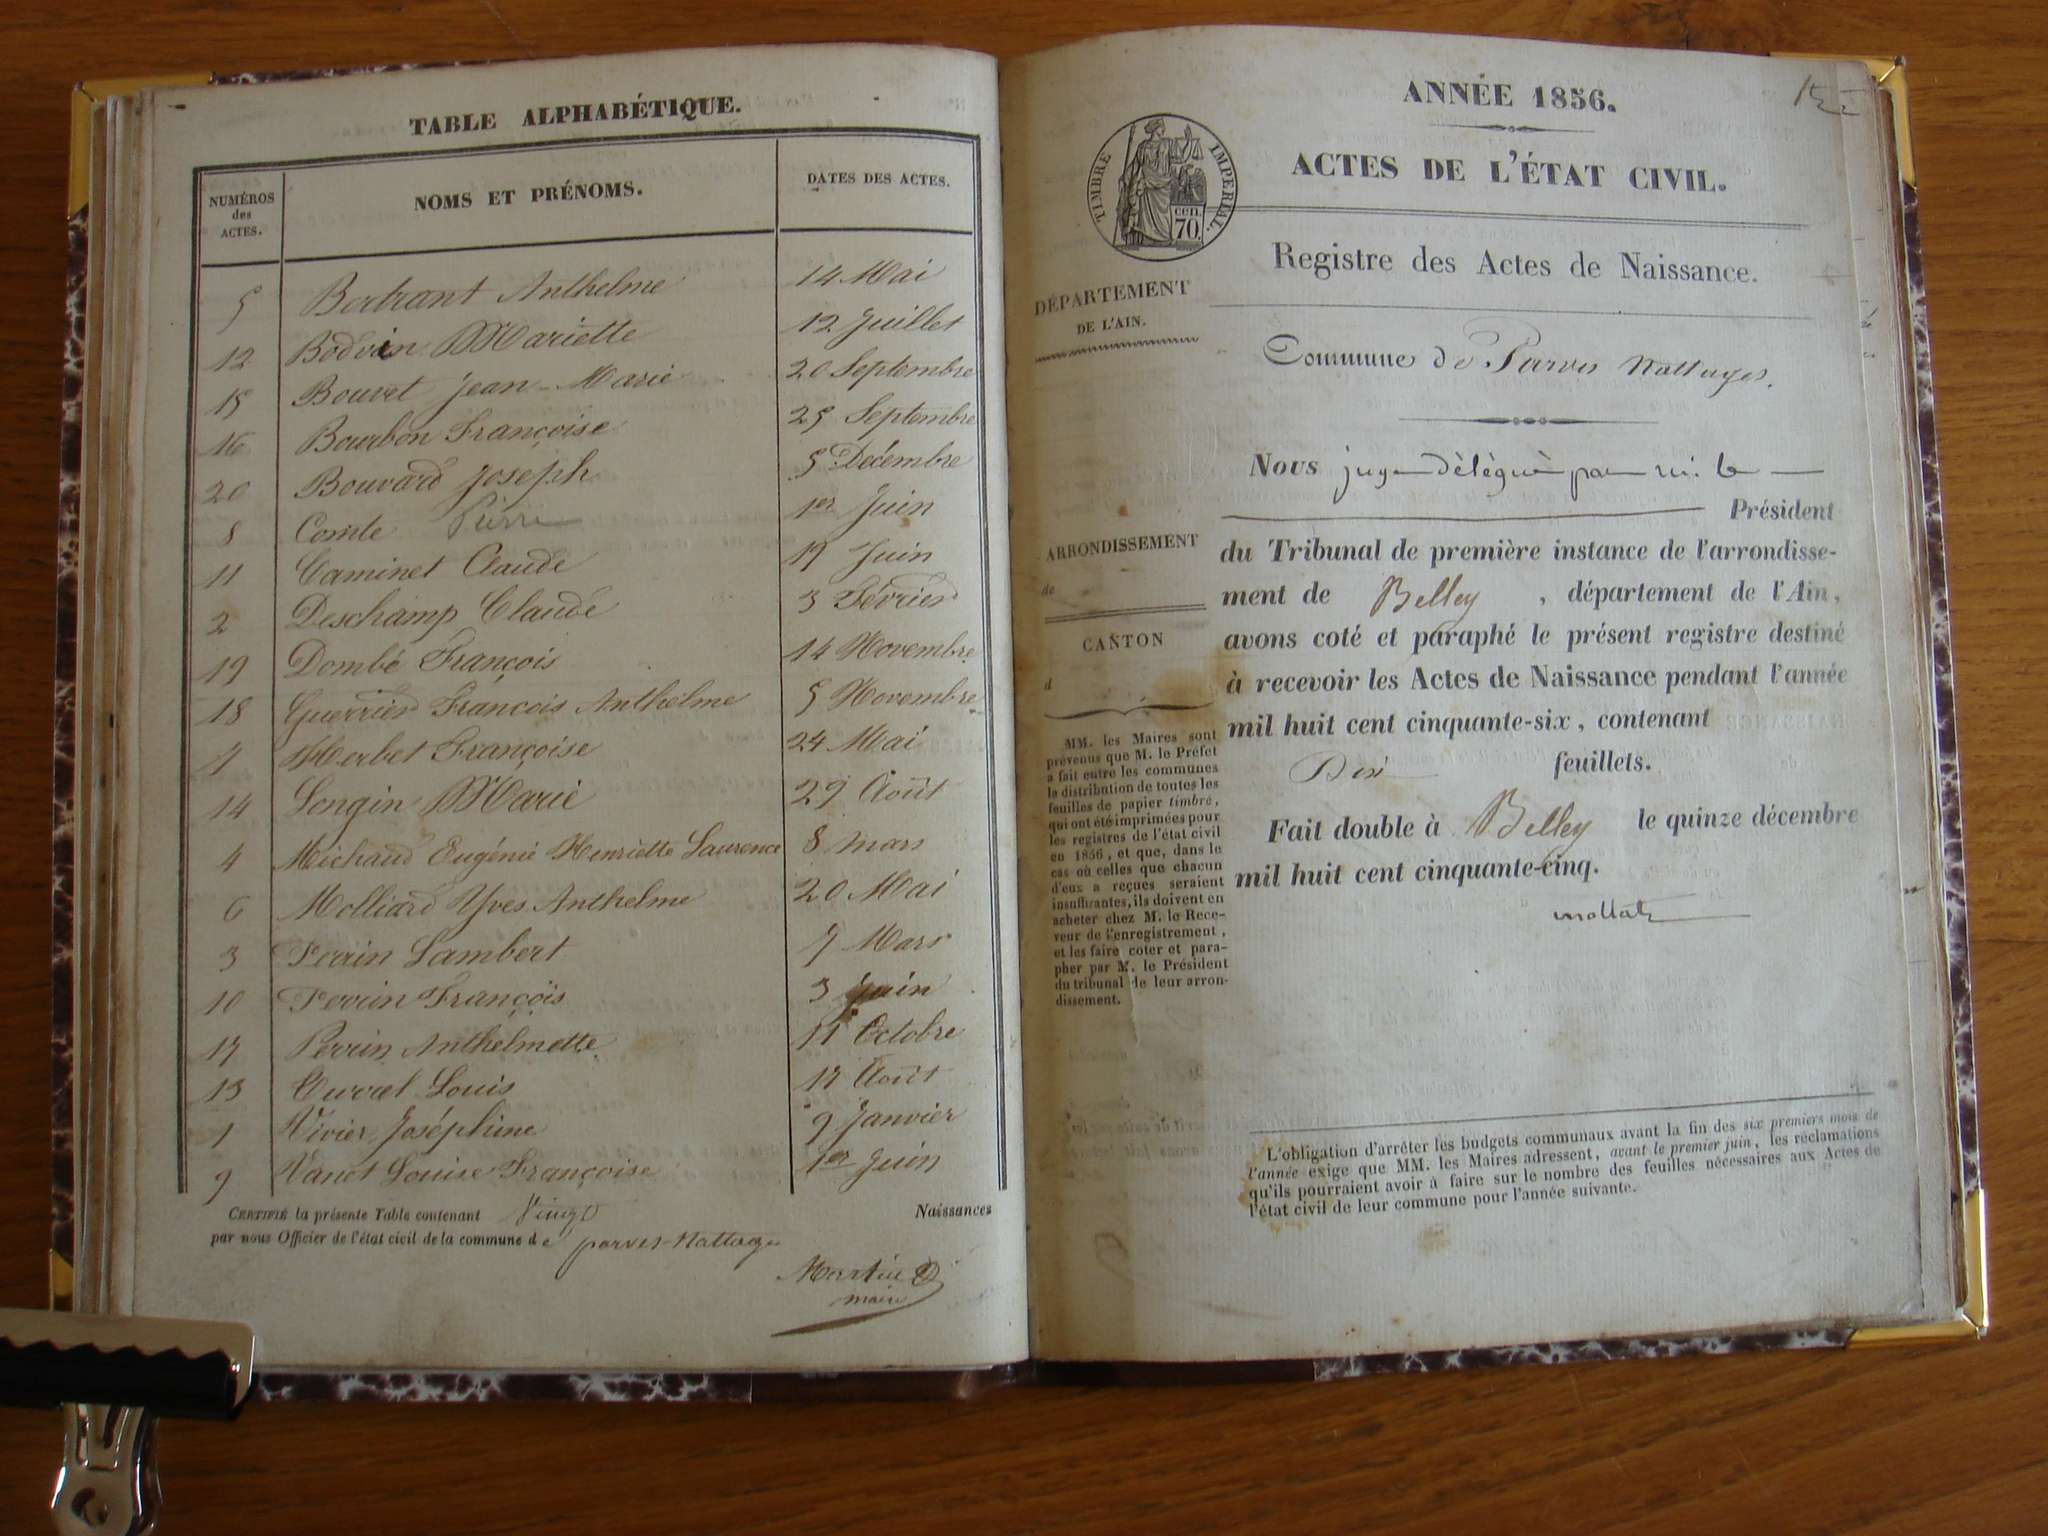 TABLE ALPHABÉTIQUE.
NUMÉROS des ACTES. NOMS ET PRÉNOMS. DATES DES ACTES.
5 Bertrant Anthelme 14 Mai
12 Bodvin Mariette 12 Juillet
15 Bouvet Jean-Marie 20 Septembre
16 Bourbon Françoise 25 Septembre
20 Bouvard Joseph 5 Décembre
8 Comte Pierre 1er Juin
11 Caminet Claude 19 Juin
2 Deschamp Claude 3 Février
19 Dombé François 14 Novembre
18 Guerrier François Anthelme 5 Novembre
7 Herbet Françoise 24 Mai
14 Longin Marie 29 Août
4 Michaud Eugénie Henriette Laurence 8 mars
6 Molliard Yves Anthelme 20 Mai
3 Perrin Lambert 7 Mars
10 Perrin François 3 Juin
17 Perrin Anthelmette 11 Octobre
13 Louis 17 Août
1 Vivier Joséphine 9 Janvier
9 Vanet Louise Françoise 1er Juin
CERTIFIÉ la présente Table contenant Vingt Naissances
par nous Officier de l'état civil de la commune de parves-Nattages
Martin
maire
ANNÉE 1856.
ACTES DE L'ÉTAT CIVIL.
TIMBRE IMPÉRIAL.
cen.
70
Registre des Actes de Naissance.
DÉPARTEMENT
DE L'AIN.
Commune de Parves Nattages.
Nous juge délégué par m. le
Président
du Tribunal de première instance de l'arrondisse-
ment de Belley, département de l'Ain,
avons coté et paraphé le présent registre destiné
à recevoir les Actes de Naissance pendant l'année
mil huit cent cinquante-six, contenant
Dix feuillets.
Fait double à Belley le quinze décembre
mil huit cent cinquante-cinq.
ARRONDISSEMENT
de
CANTON
d
MM. les Maires sont
prévenus que M. le Préfet
a fait entre les communes
la distribution de toutes les
feuilles de papier timbré,
qui ont été imprimées pour
les registres de l'état civil
en 1856, et que, dans le
cas où celles que chacun
d'eux a reçues seraient
insuffisantes, ils doivent en
acheter chez M. le Rece-
veur de l'enregistrement,
et les faire coter et para-
pher par M. le Président
du tribunal de leur arron-
dissement.
L'obligation d'arrêter les budgets communaux avant la fin des six premiers mois de
l'année exige que MM. les Maires adressent, avant le premier juin, les réclamations
qu'ils pourraient avoir à faire sur le nombre des feuilles nécessaires aux Actes de
l'état civil de leur commune pour l'année suivante.